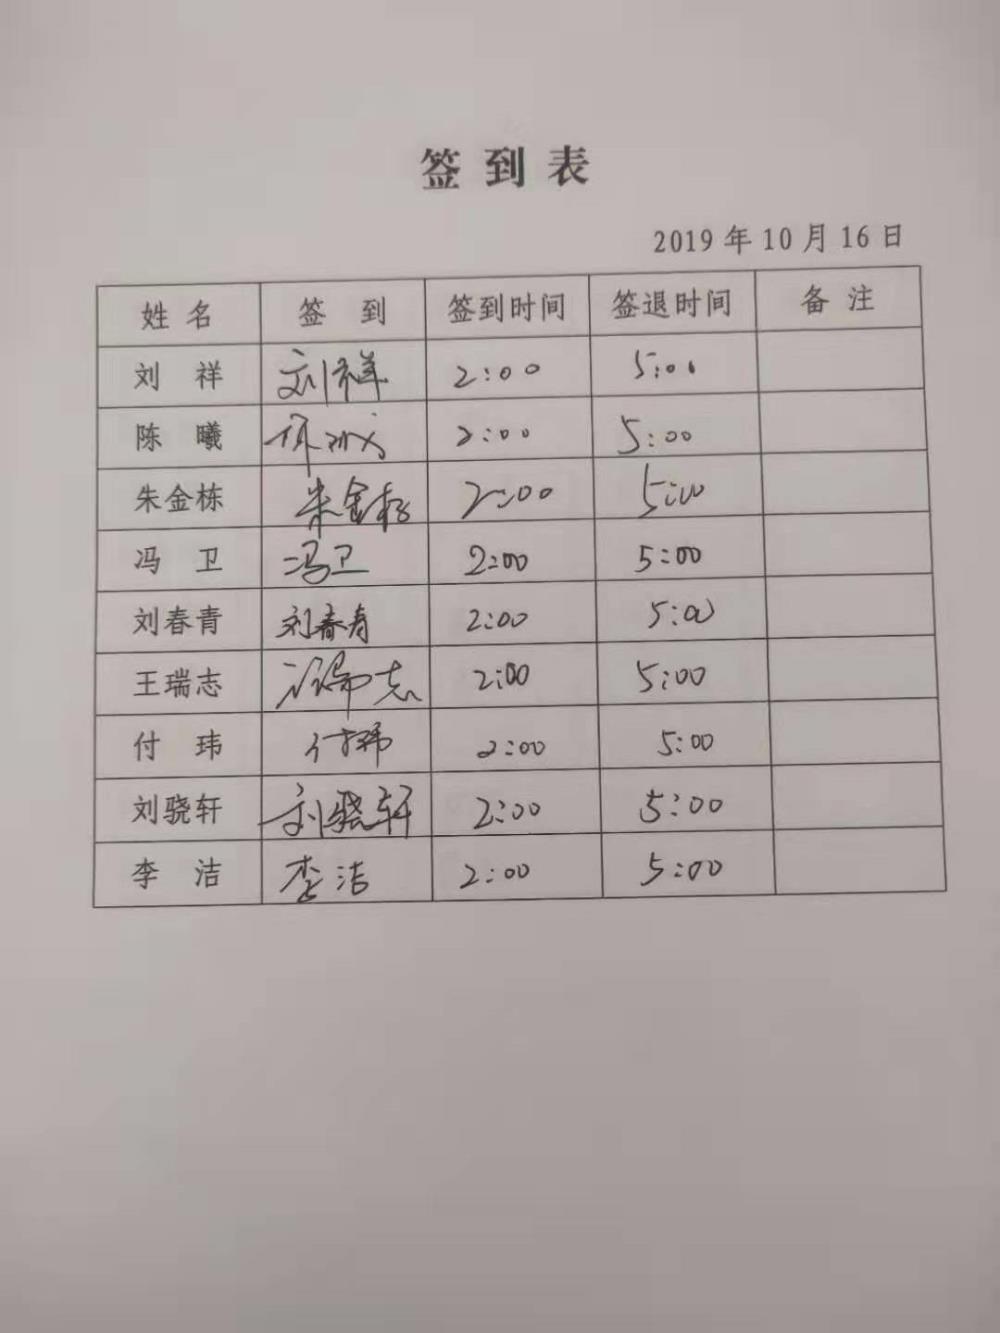 签 到 表
2019 年 10 月 16 日
姓 名 签 到 签到时间 签退时间 备 注
刘 祥 刘祥 2:00 5:00
陈 曦 2:00 5:00
朱金栋 朱金栋 2:00 5:00
冯 卫 冯卫 2:00 5:00
刘春青 刘春青 2:00 5:00
王瑞志 王瑞志 2:00 5:00
付 玮 付玮 2:00 5:00
刘骁轩 刘骁轩 2:00 5:00
李 洁 李洁 2:00 5:00